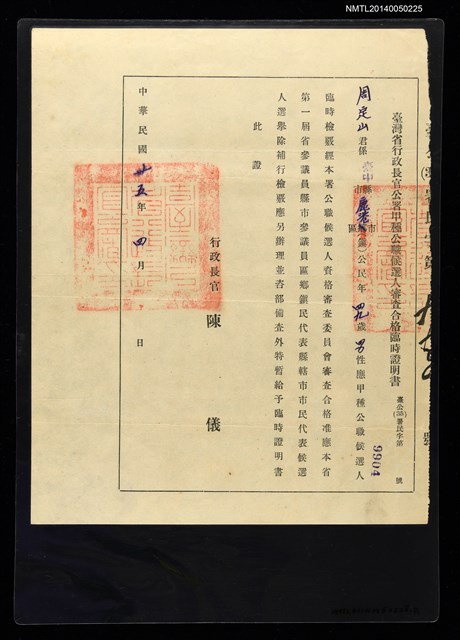 NMTL20140050225
臺灣省行政長官公署甲種公職候選人審查合格臨時證明書
臺公(35)署民字第 9904 號
周定山君係臺中縣市鹿港區鄉鎮市公民年四九歲男性應甲種公職候選人
臨時檢覈經本署公職候選人資格審查委員會審查合格准應本省
第一屆省參議員縣市參議員區鄉鎮民代表縣轄市市民代表候選
人選舉除補行檢覈應另辦理並咨部備查外特暫給予臨時證明書
此證
行政長官 陳儀
中華民國卅五年四月 日